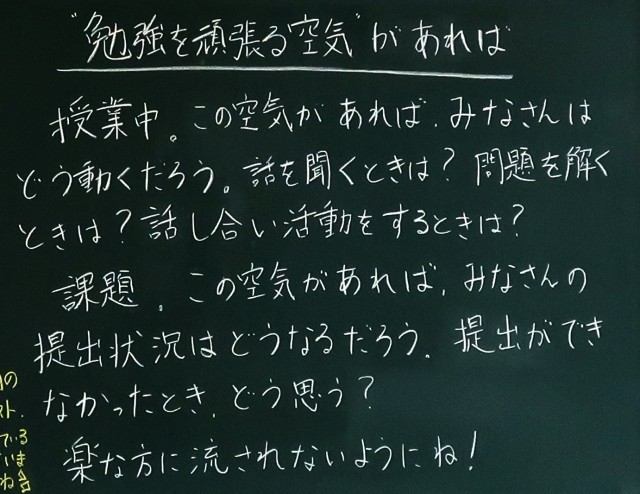 "勉強を頑張る空気"があれば
授業中。この空気があれば、みなさんは
どう動くだろう。話を聞くときは?問題を解く
ときは?話し合い活動をするときは?
課題。この空気があれば、みなさんの
提出状況はどうなるだろう。提出ができ
なかったとき、どう思う?
楽な方に流されないようにね!
の
ト.
でいる
いま
ね